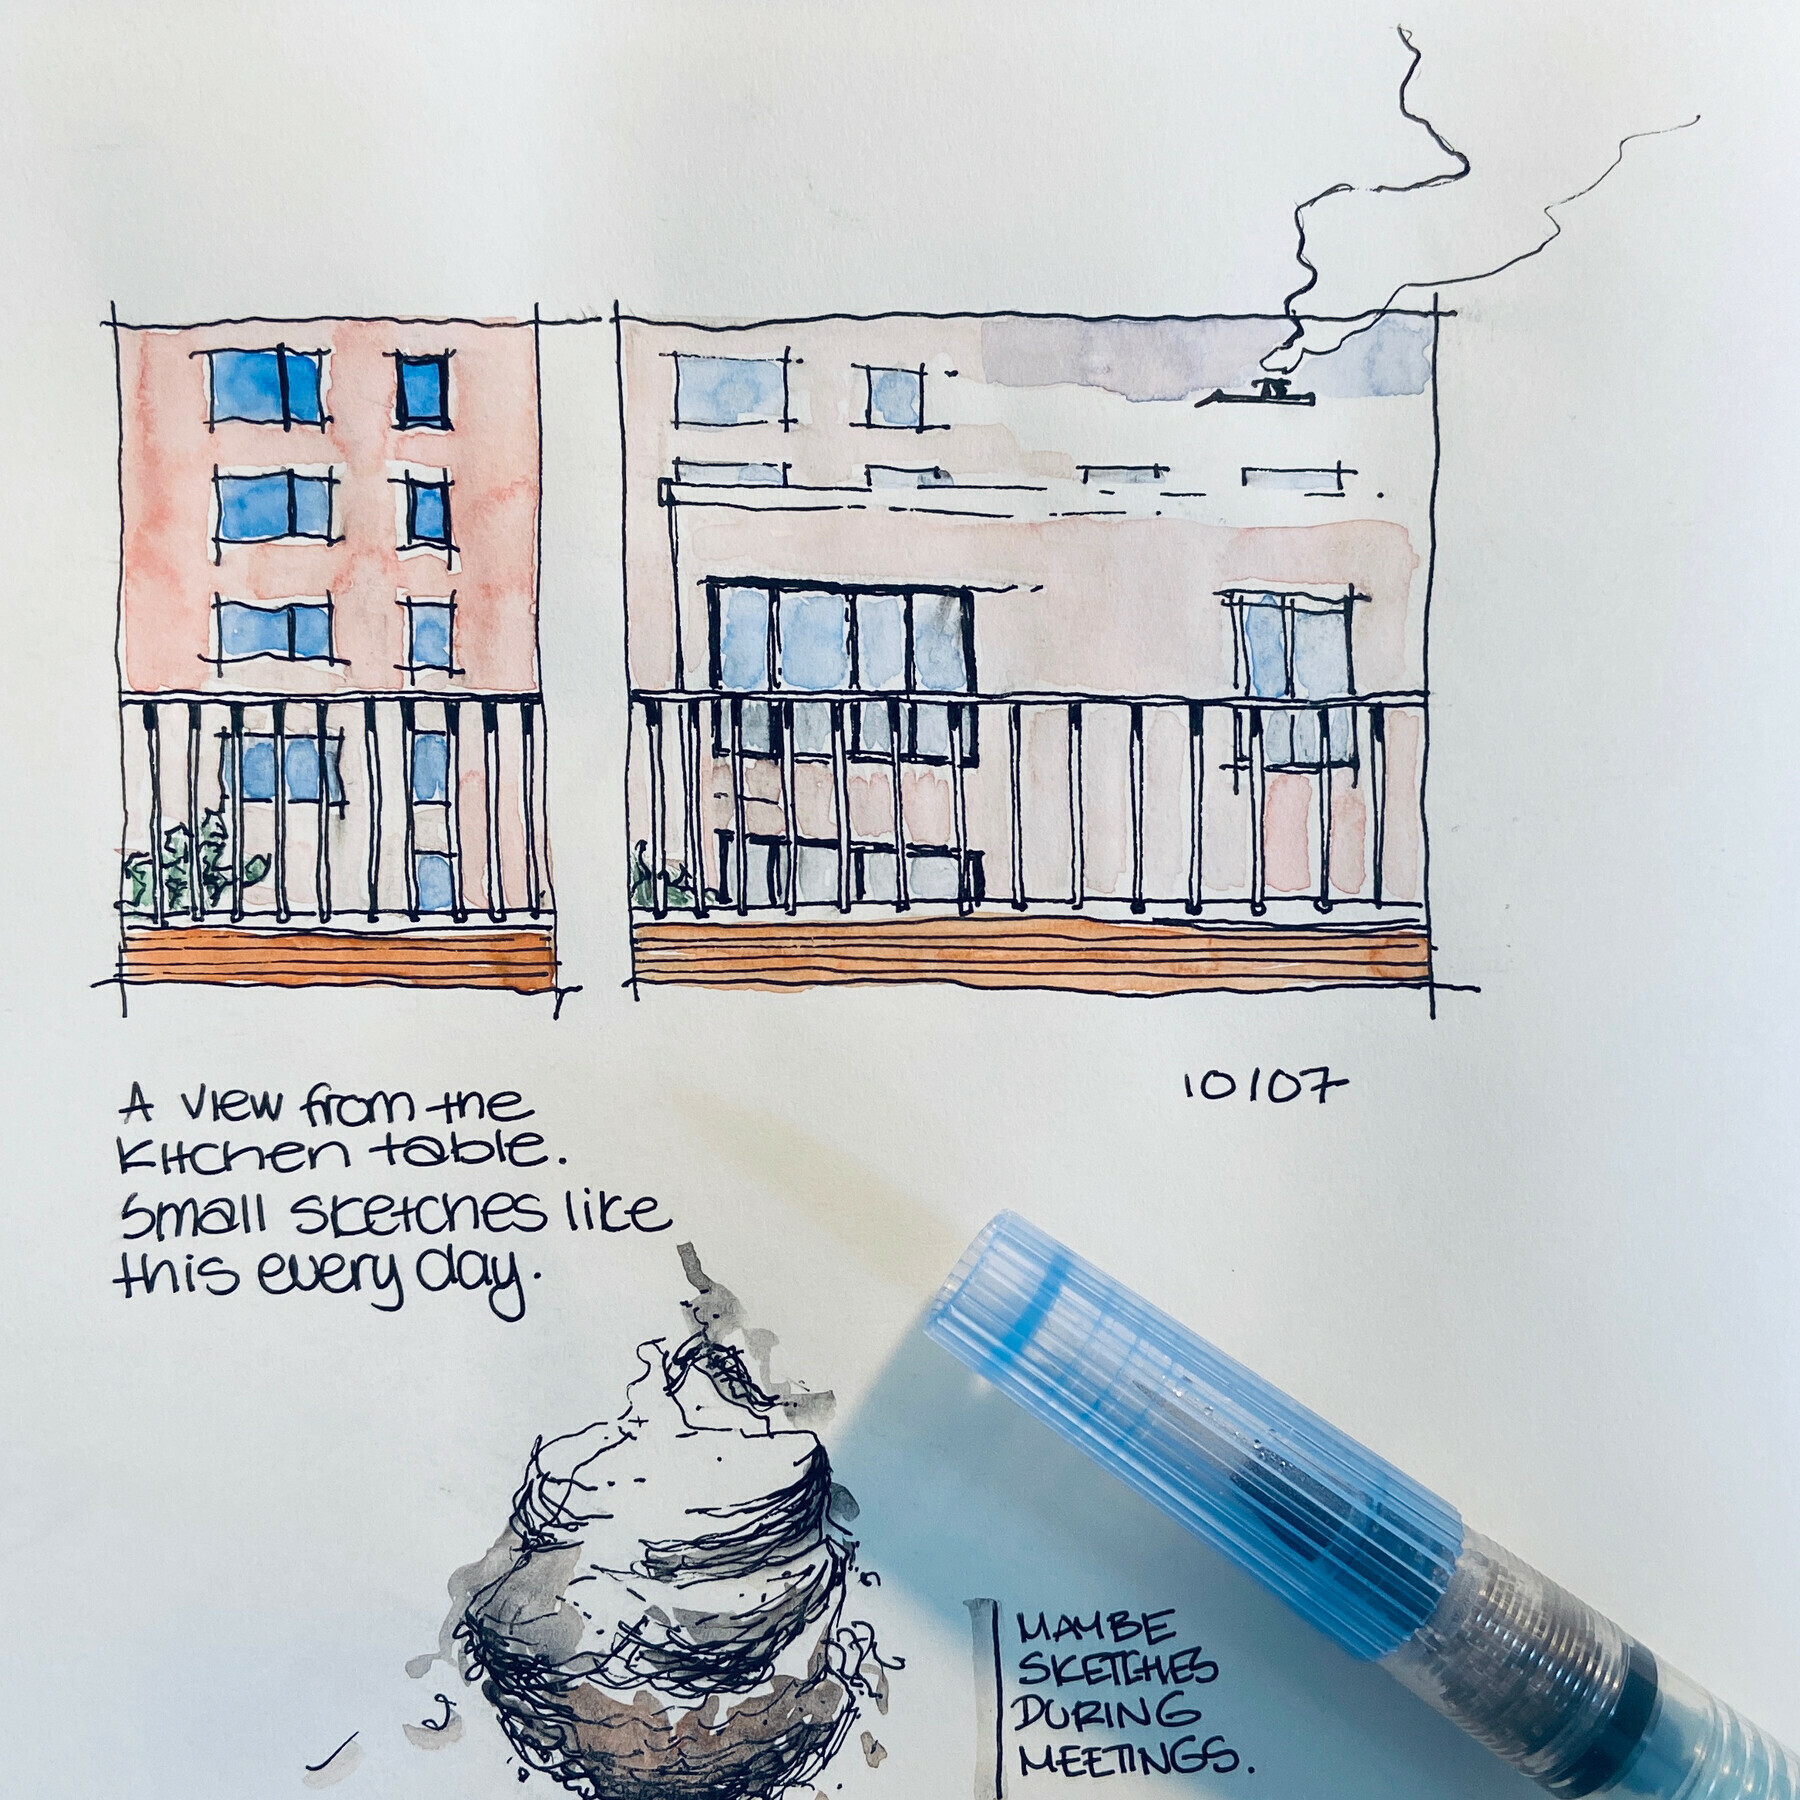 A view from the
kitchen table.
Small sketches like
this every day.
10107
MAYBE
SKETCHES
DURING
MEETINGS.